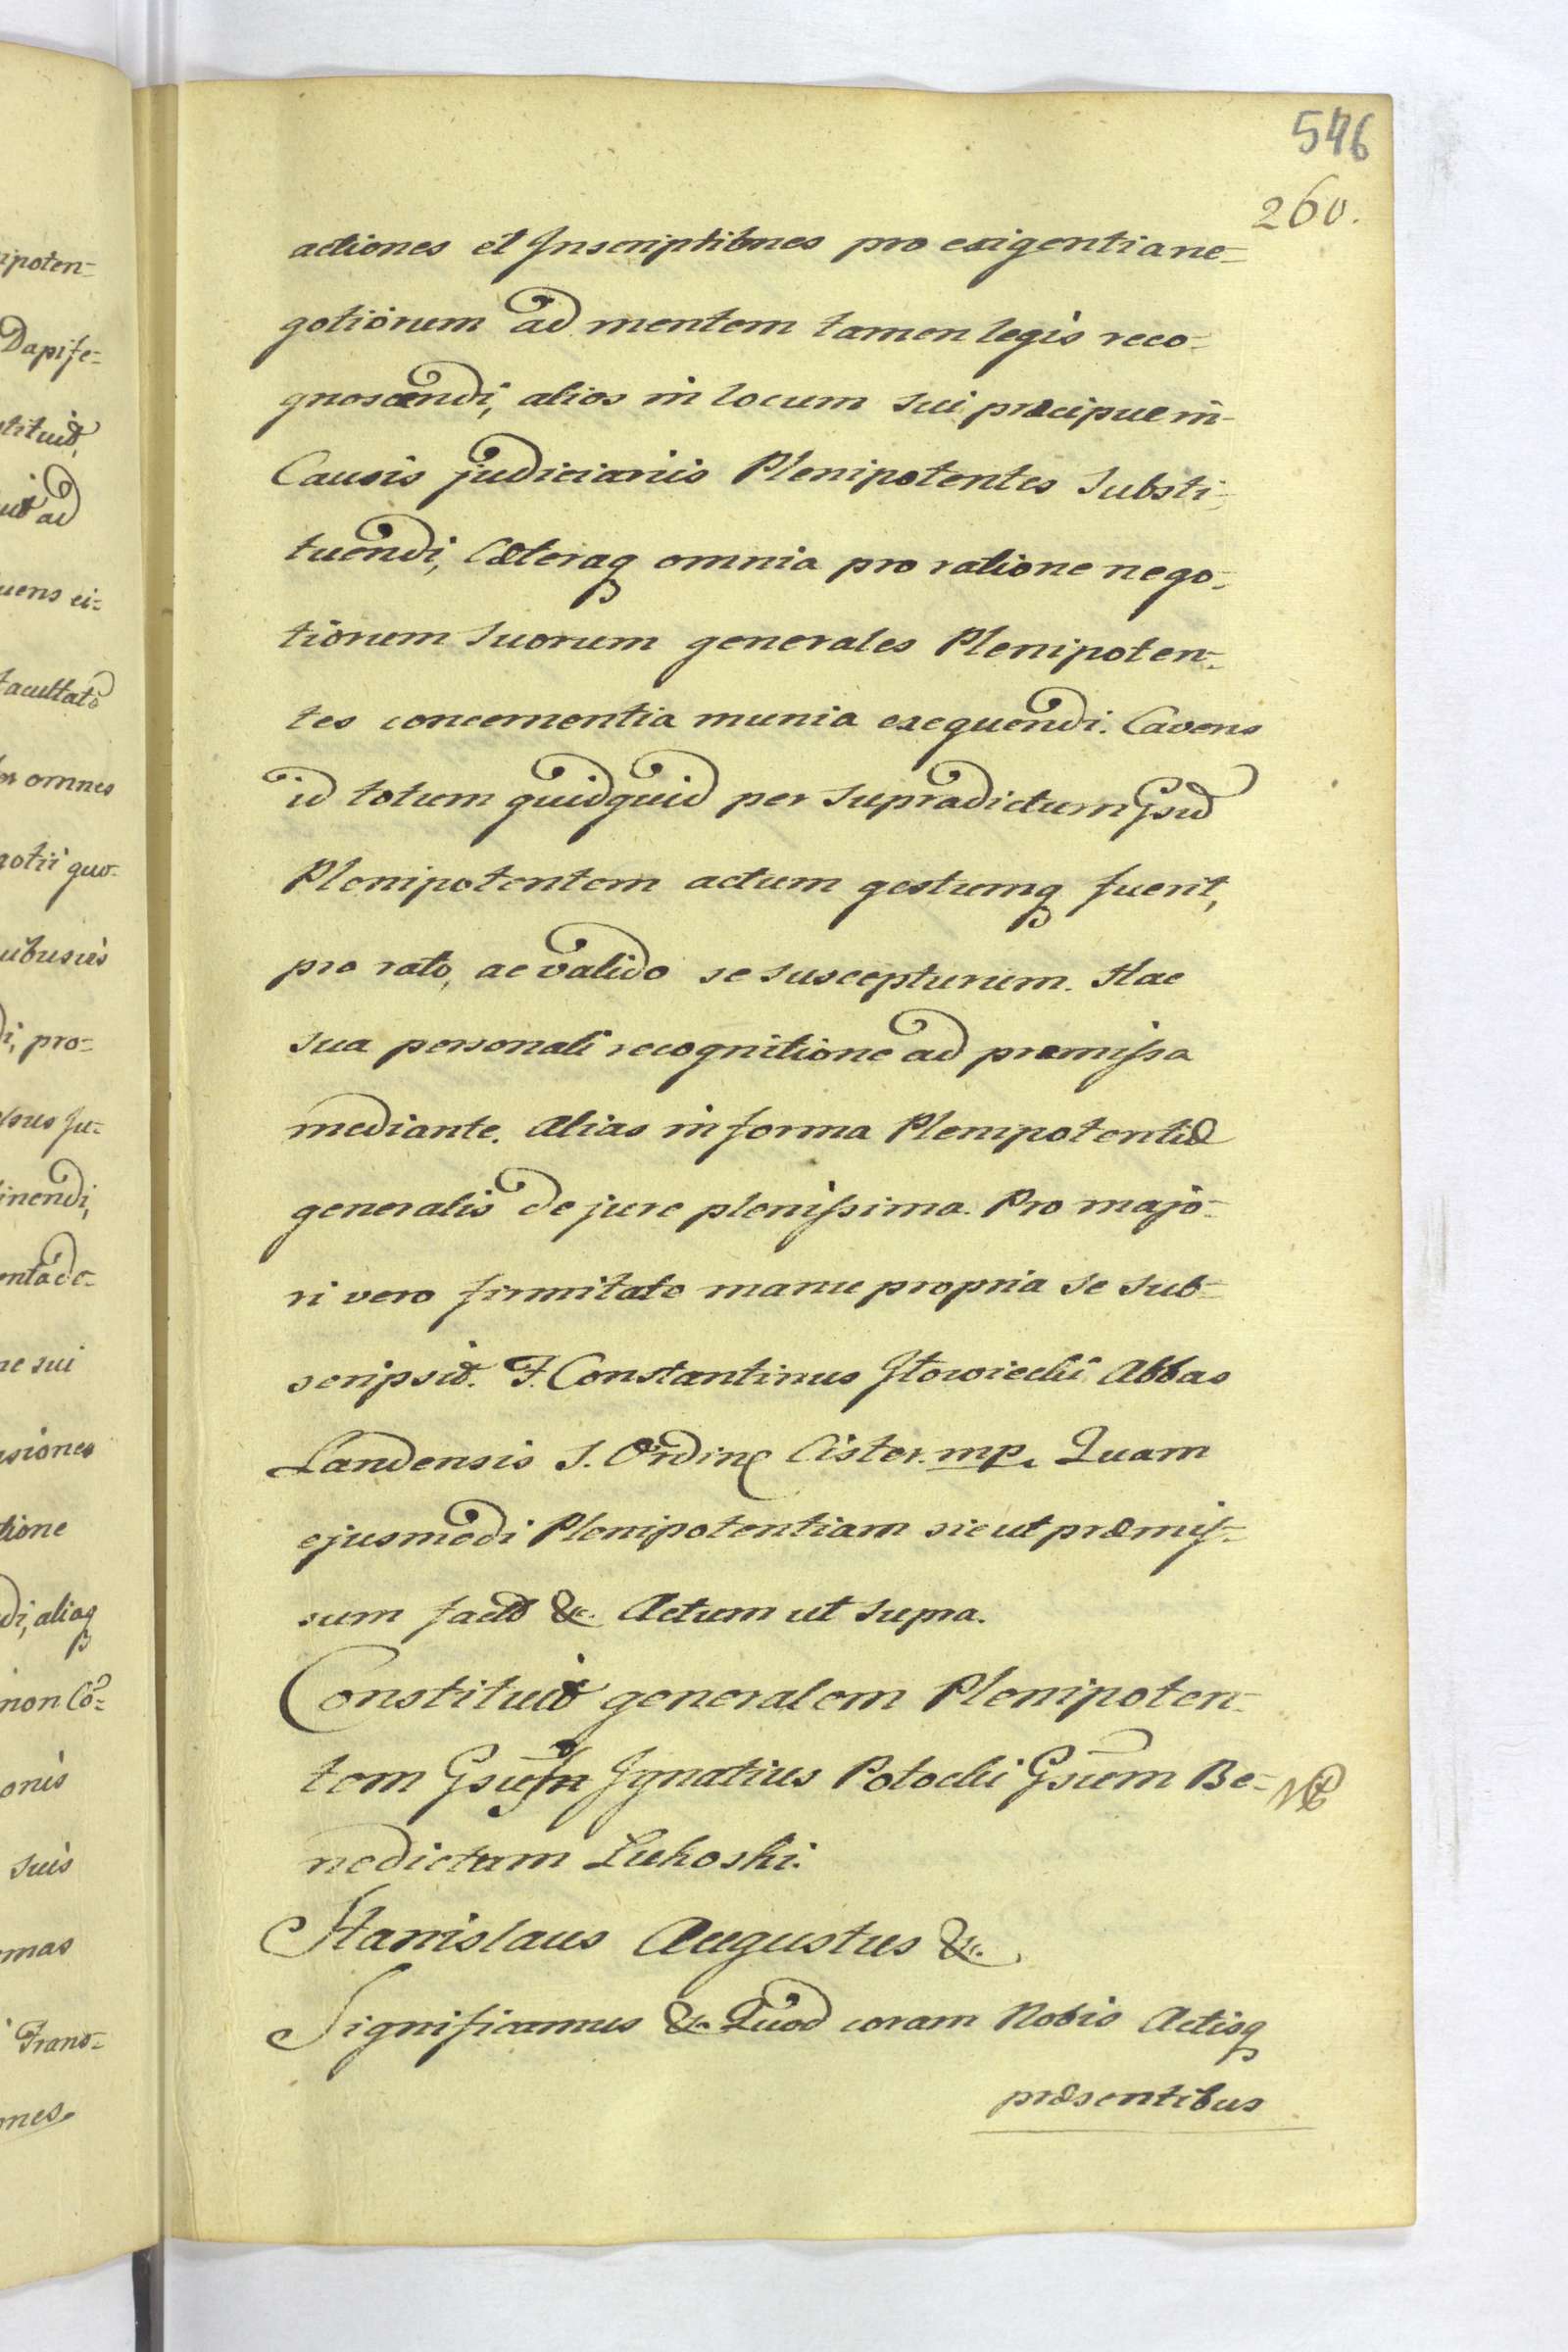 546
260.
actiones et Inscriptiones pro exigentia ne-
gotiorum ad mentem tamen legis reco-
gnoscendi, alios in locum sui præcipue in
Causis judiciariis Plenipotentes substi-
tuendi, Cæteraq omnia pro ratione nego-
tiorum suorum generales Plenipoten-
tes concernentia munia exequendi. Cavens
id totum quidquid per supradictum Gsūm
Plenipotentem actum gestumq fuerit,
pro rato, ac valido se suscepturum. Hac
sua personali recognitione ad præmissa
mediante. Alias in forma Plenipotentiæ
generalis de jure plenissima. Pro majo-
ri vero firmitate manu propria se sub-
scripsit. F. Constantinus Iłowiecki Abbas
Landensis S. Ordin Cister. mp. Quam
ejusmodi Plenipotentiam sicut præmis-
sum facto &c. Actum ut supra.
Constituit generalem Plenipoten-
tem Ignatius Potocki Gsūm Be-
nedictum Lukoski.
Stanislaus Augustus &c.
Significamus &c. Quod coram Nobis Actisq
præsentibus
ipoten-
Dapife-
stituit,
ad
uens ei-
facultatē
omnes
gotii quo-
uibusvis
di, pro-
sus ju-
inendi,
ne sui
nsiones
tione
di, aliaq
non Co-
onis
suis
mas
Frans-
ones.